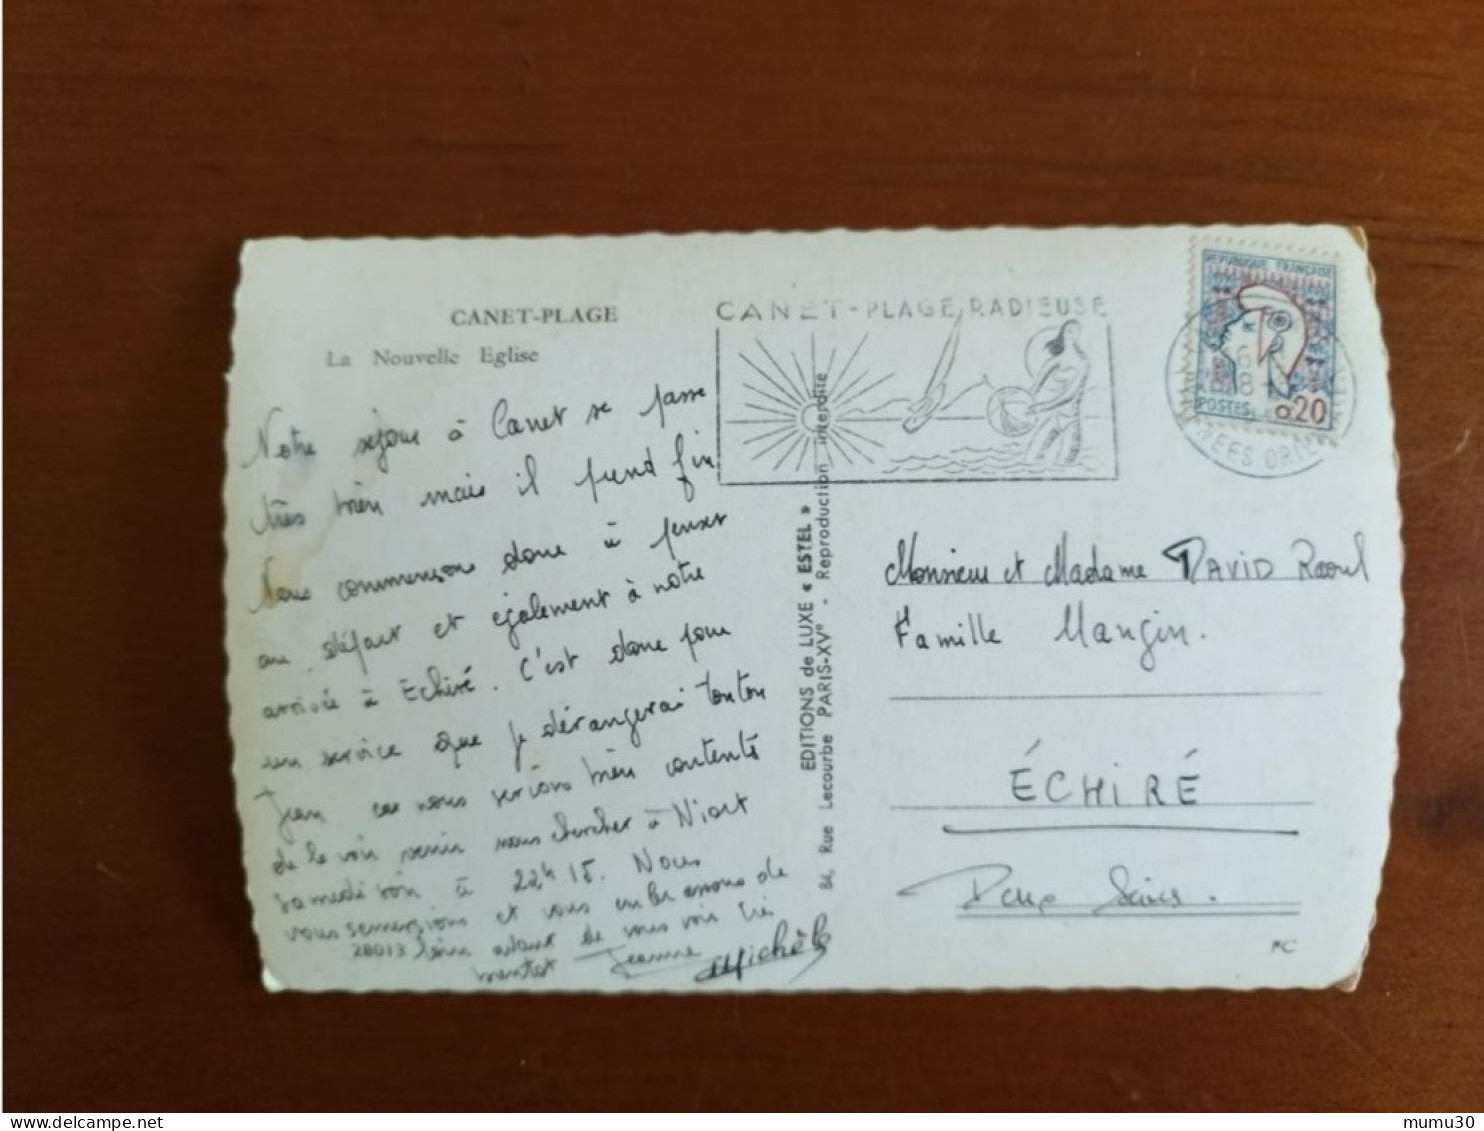 CANET-PLAGE
La Nouvelle Eglise
Notre séjour à Canet se passe
très bien mais il prend fin
Nous commençons donc à penser
au départ et également à notre
arrivée à Echiré. C'est donc pour
un service que je dérangerai tonton
Jean car nous serions bien contents
de le voir venir nous chercher à Niort
samedi soir à 22h15. Nous
vous remercions et vous embrassons de
28013 loin avant de vous voir très
bientôt Jeanne Michèle
CANET-PLAGE RADIEUSE
EDITIONS de LUXE « ESTEL »
84, Rue Lecourbe PARIS-XVe - Reproduction interdite
REPUBLIQUE FRANÇAISE
POSTES 0,20
6
18
Monsieur et Madame DAVID Raoul
Famille Mangin.
ÉCHIRÉ
Deux Sèvres.
PC
delcampe.net
mumu30